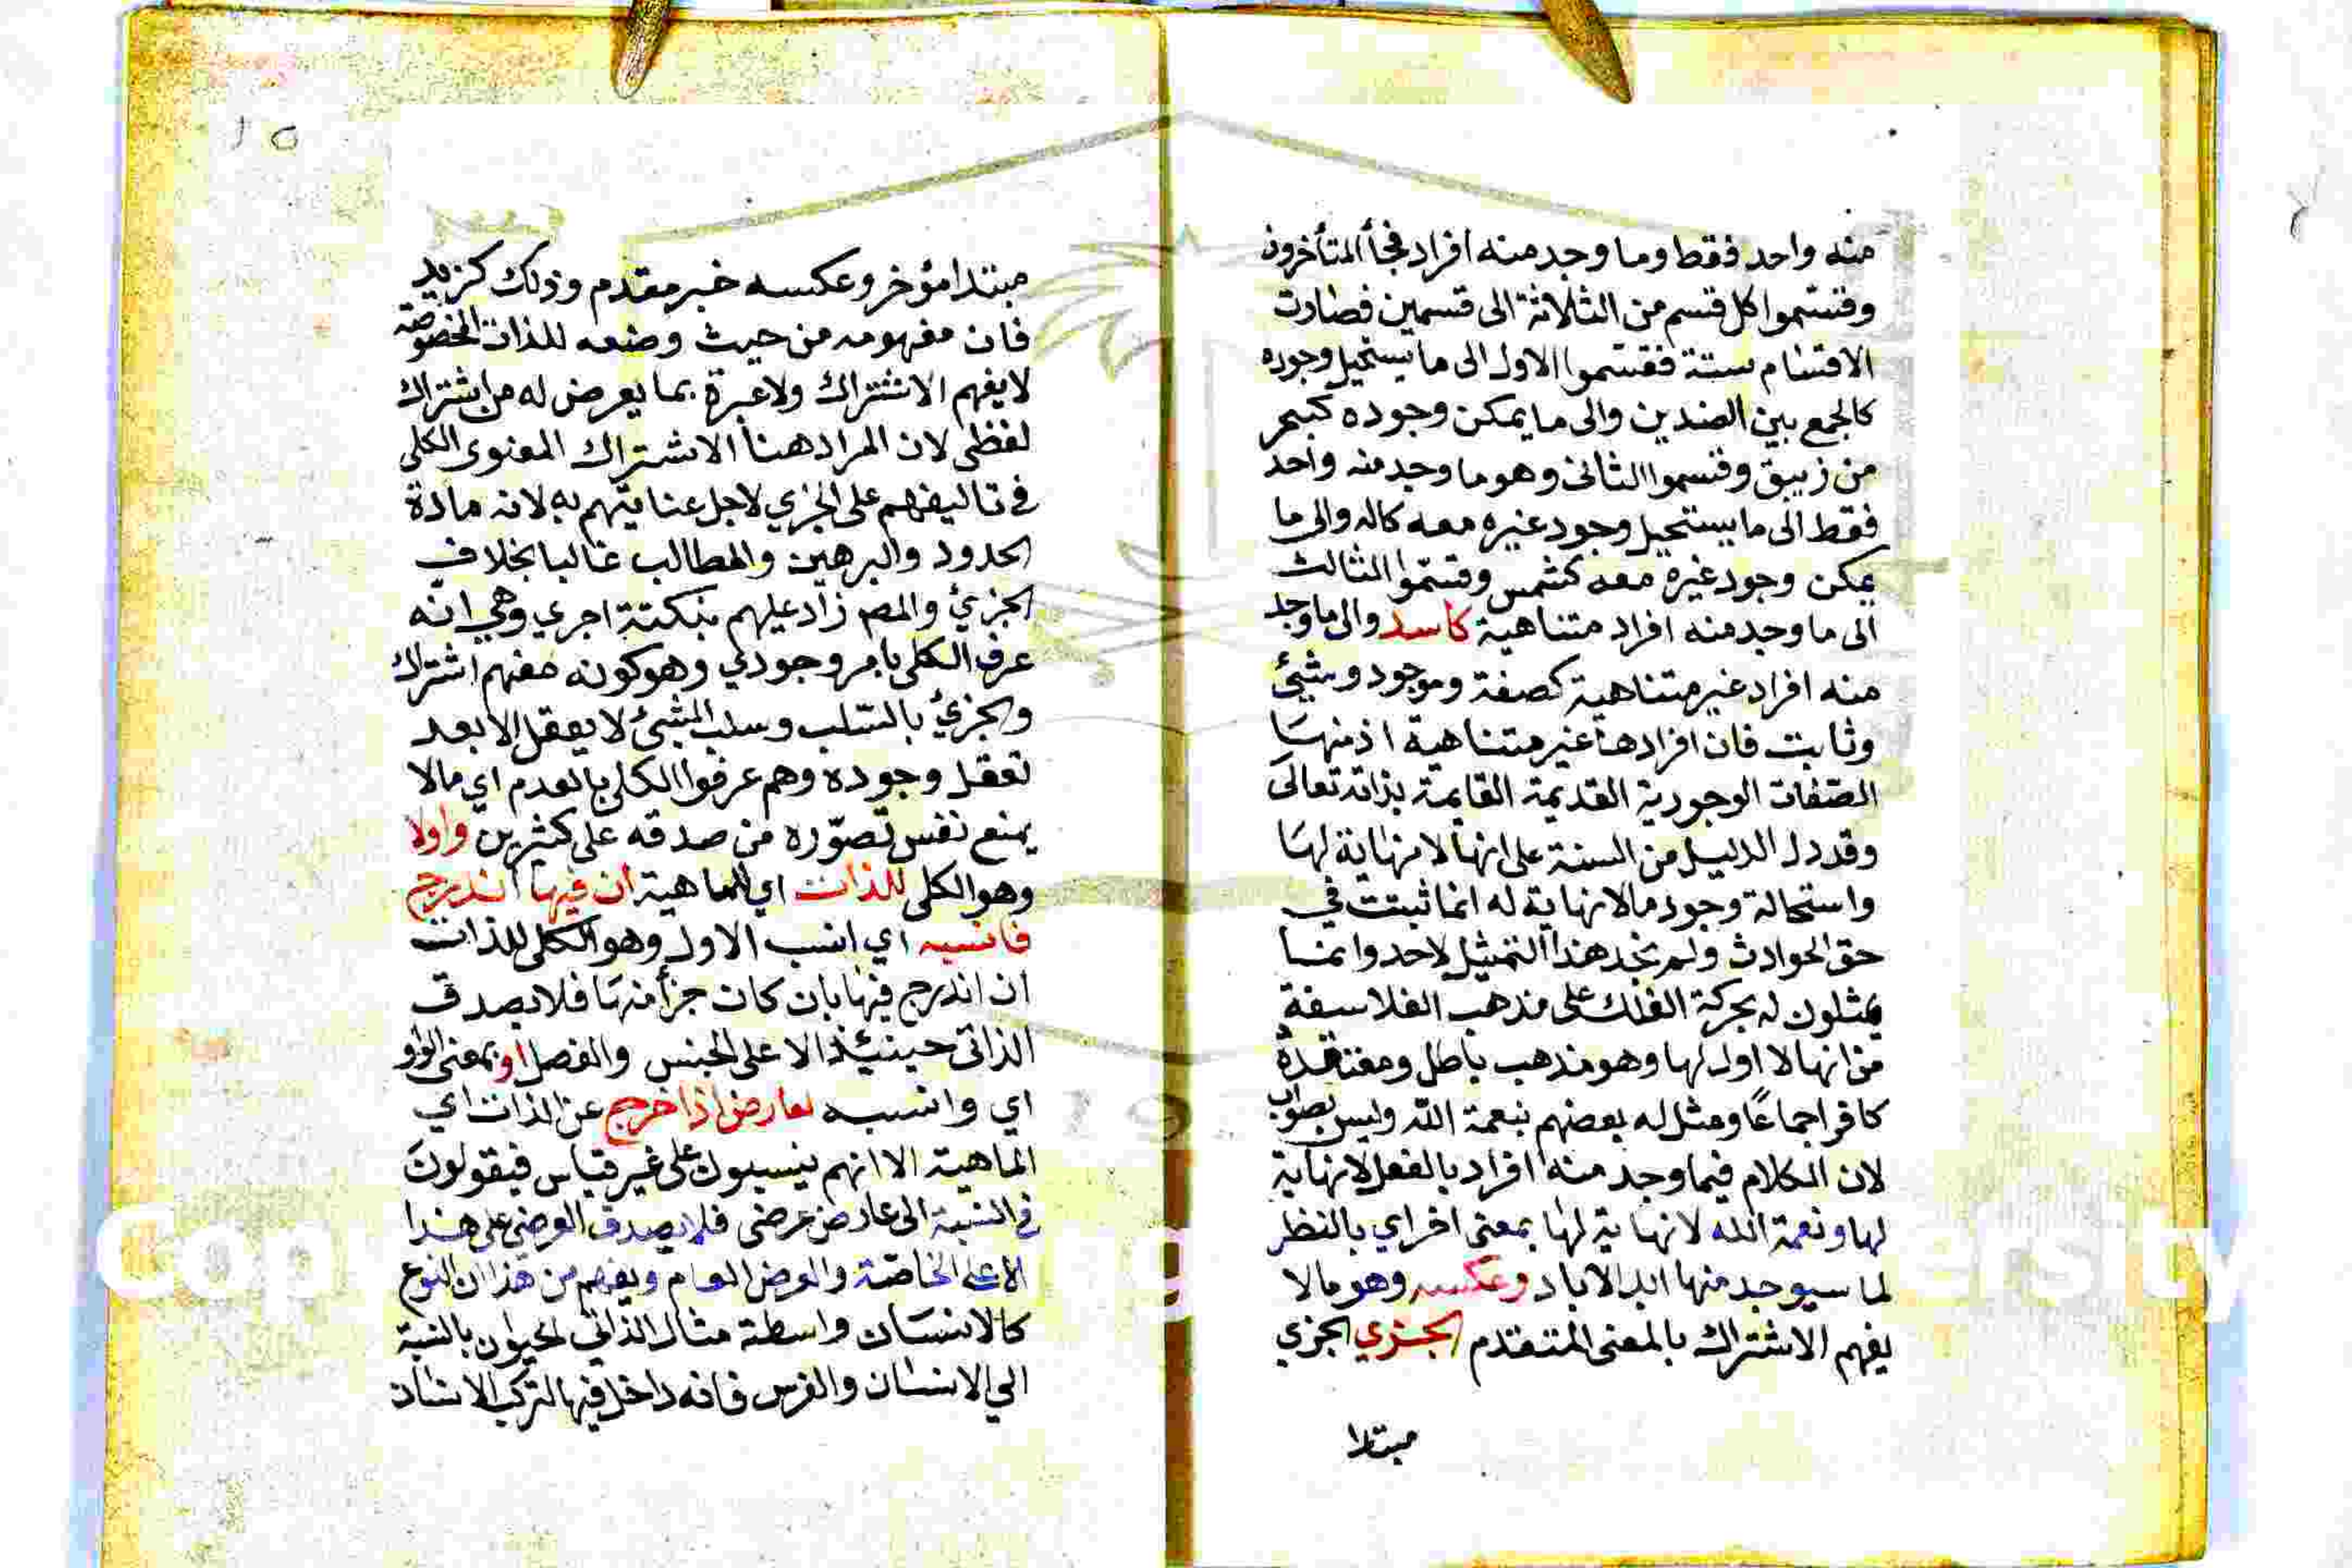 منه واحد فقط وما وجد منه افراد فجأ المتأخرون
وقسموا كل قسم من الثلاثة الى قسمين فصارت
الاقسام ستة فقسموا الاول الى ما يستحيل وجوده
كالجمع بين الضدين والى ما يمكن وجوده كبحر
من زيبق وقسموا الثانى وهو ما وجد منه واحد
فقط الى ما يستحيل وجود غيره معه كاله والى ما
يمكن وجود غيره معه كشمس وقسموا الثالث
الى ما وجد منه افراد متناهية كاسد والى ما وجد
منه افراد غير متناهية كصفة وموجود وشيئ
وثابت فان افرادها غير متناهية اذ منها
الصفات الوجودية القديمة القايمة بذاته تعالى
وقد دل الدليل من السنة على انها لا نهاية لها
واستحالة وجود مالا نهاية له انما ثبتت في
حق الحوادث ولم نجد هذا التمثيل لاحد وانما
يمثلون له بحركة الفلك على مذهب الفلاسفة
من انها لا اول لها وهو مذهب باطل ومعتقده
كافر اجماعًا ومثل له بعضهم بنعمة الله وليس بصواب
لان الكلام فيما وجد منه افراد بالفعل لا نهاية
لها ونعمة الله لا نهاية لها بمعنى اخر اي بالنظر
لما سيوجد منها ابد الاباد وعكسه وهو مالا
يفهم الاشتراك بالمعنى المتقدم الجزي الجزي
مبتدا
١٥
مبتدا مؤخر وعكسه خبر مقدم وذلك كزيد
فان مفهومه من حيث وضعه للذات المخصوصة
لا يفهم الاشتراك ولا عبرة بما يعرض له من اشتراك
لفظى لان المراد هنا الاشتراك المعنوى الكلى
في تاليفهم على الجزي لاجل عنايتهم به لانه مادة
الحدود والبرهين والمطالب غالبا بخلاف
الجزئ والمصـ زاد عليهم بنكتة اجري وهي انه
عرف الكلى بامر وجودي وهو كونه مفهم اشتراك
والجزئ بالسلب وسلب الشئ لا يعقل الا بعد
تعقل وجوده وهم عرفوا الكلى بالعدم اي مالا
يمنع نفس تصوّره من صدقه على كثيرين واولا
وهو الكلى للذات اي الماهية ان فيها اندرج
فانسبه اي انسب الاول وهو الكلى للذات
ان اندرج فيها بان كان جزأ منها فلا يصدق
الذاتى حينيئذ الا على الجنس والفصل او بمعنى الواو
اي وانسبه لعارض اذا خرج عن الذات اي
الماهية الا انهم ينسبون على غير قياس فيقولون
في النسبة الى عارض عرضى فلا يصدق العرضى على هذا
الا على الخاصة والعرض العام ويفهم من هذا ان النوع
كالانسان واسطة مثال الذاتى الحيوان بالنسبة
الي الانسان والفرس فانه داخل فيها لتركب الانسان